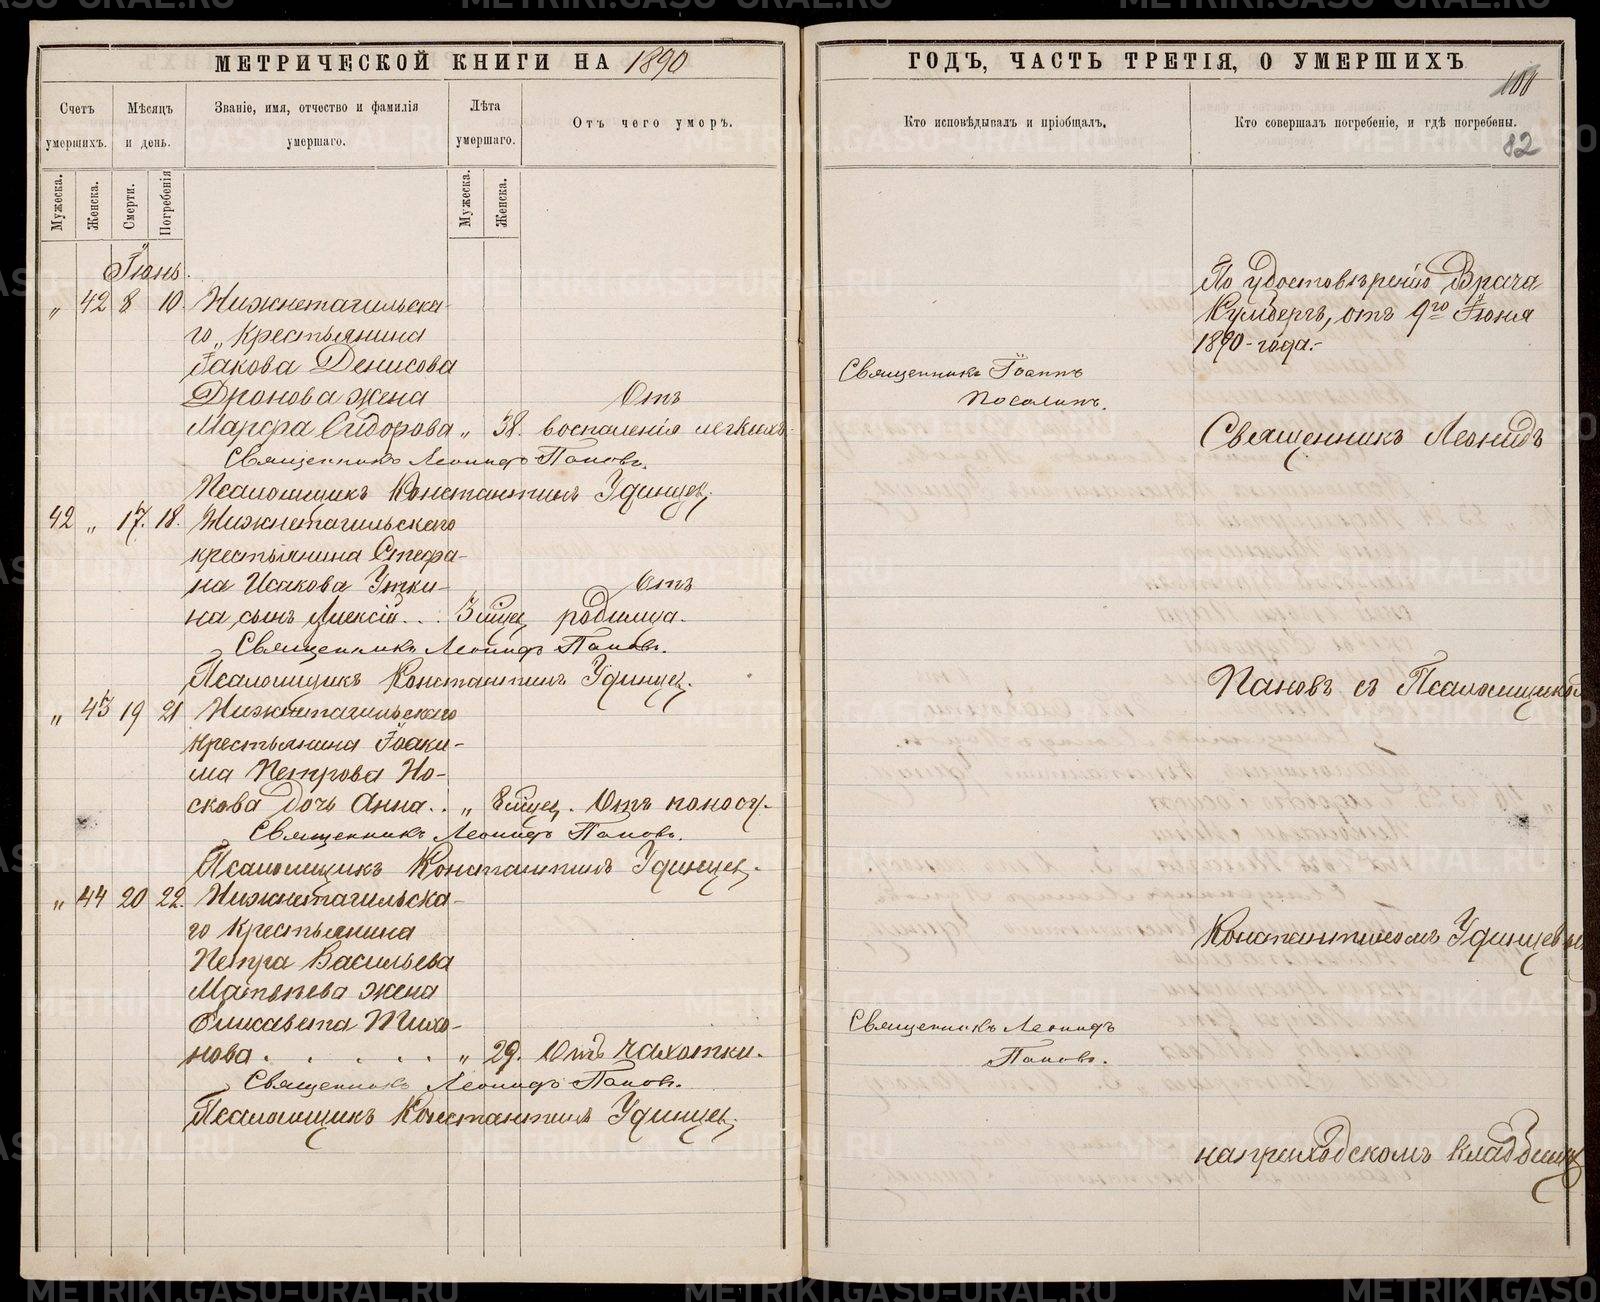 МЕТРИЧЕСКОЙ КНИГИ НА 1890
Счетъ умершихъ.
Мѣсяцъ и день.
Званіе, имя, отчество и фамилія умершаго.
Лѣта умершаго.
Отъ чего умеръ.
Мужеска.
Женска.
Смерти.
Погребенія
Мужеска.
Женска.
Іюнь.
„ 42 8 10. Нижнетагильска-
го „ крестьянина
Іакова Денисова
Дронова жена Отъ
Марфа Сидорова „ 38. воспаленія легкихъ.
Священникъ Леонидъ Пановъ.
Псаломщикъ Константинъ Удинцев.
42 „ 17. 18. Нижнетагильскаго
крестьянина Стефа-
на Исакова Утки- Отъ
на сынъ Алексій... 3 мѣсц родимца.
Священникъ Леонидъ Пановъ.
Псаломщикъ Константинъ Удинцев.
„ 43 19 21 Нижнетагильскаго
крестьянина Іоаки-
ма Петрова Но-
скова дочь Анна.. „ 8 мѣсц. Отъ поносу.
Священникъ Леонидъ Пановъ.
Псаломщикъ Константинъ Удинцев.
„ 44 20 22. Нижнетагильска-
го крестьянина
Петра Васильева
Матвѣева жена
Елисавета Тихо-
нова. . . . . . „ 29. Отъ чахотки.
Священникъ Леонидъ Пановъ.
Псаломщикъ Константинъ Удинцев.
ГОДЪ, ЧАСТЬ ТРЕТІЯ, О УМЕРШИХЪ
82
Кто исповѣдывалъ и пріобщалъ.
Кто совершалъ погребеніе, и гдѣ погребены.
По удостовѣренію Врача
Кумбергъ, отъ 9го Іюня
1890-года.-
Священникъ Іоаннъ
Священникъ Леонидъ
Пановъ съ Псаломщикомъ
Константиномъ Удинцевым
Священникъ Леонидъ
Пановъ.
на приходскомъ кладбищѣ
METRIKI.GASO-URAL.RU